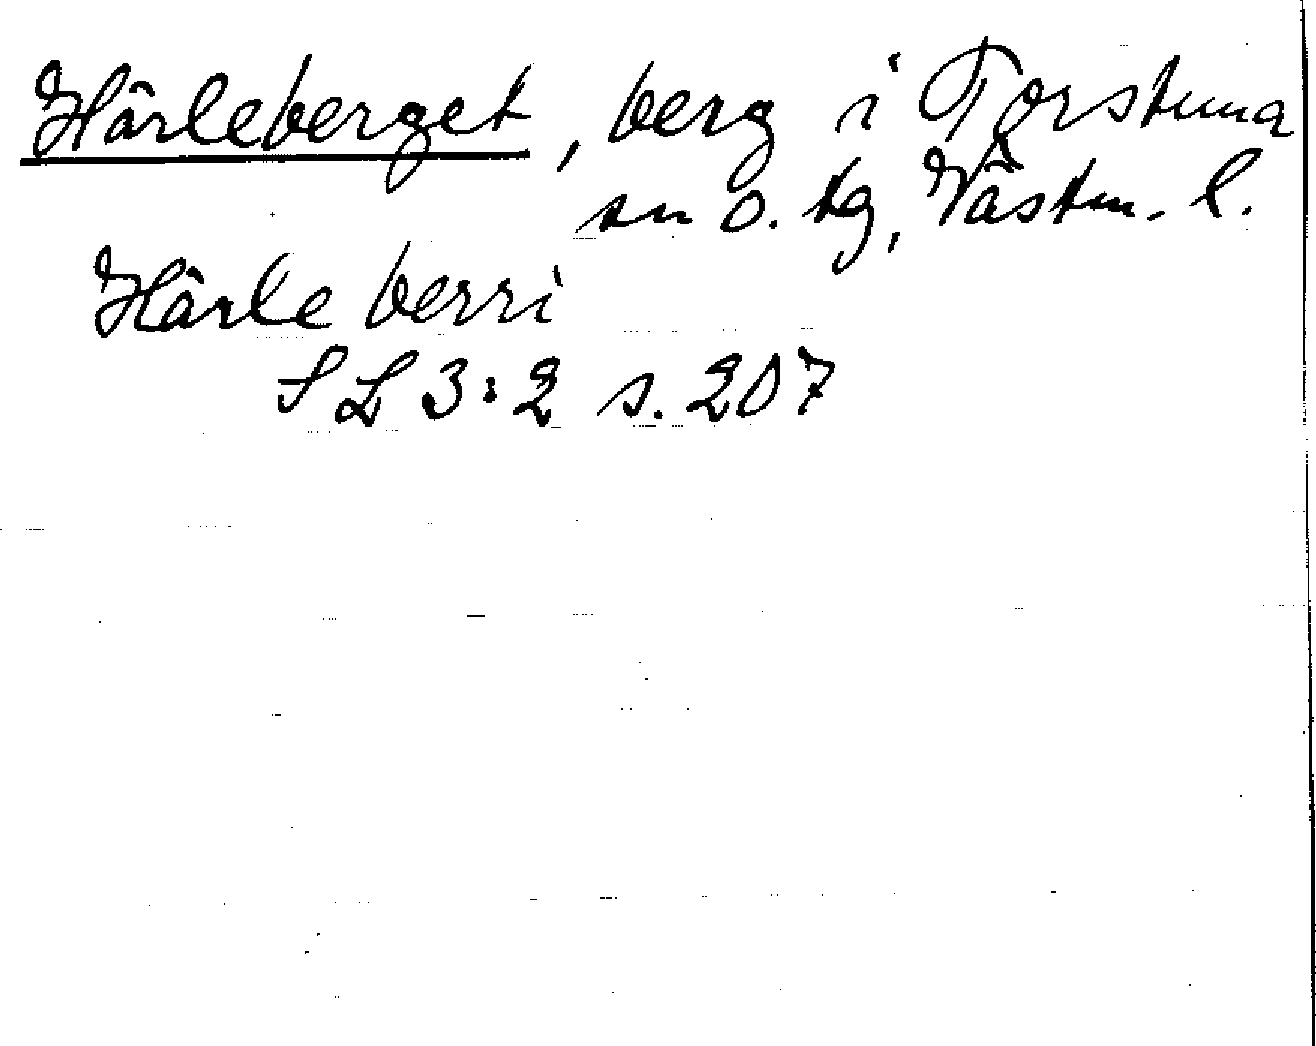 Härleberget, berg i Torstuna
sn o. tg, Västm. l.
Härle berri
SL 3:2 s. 207